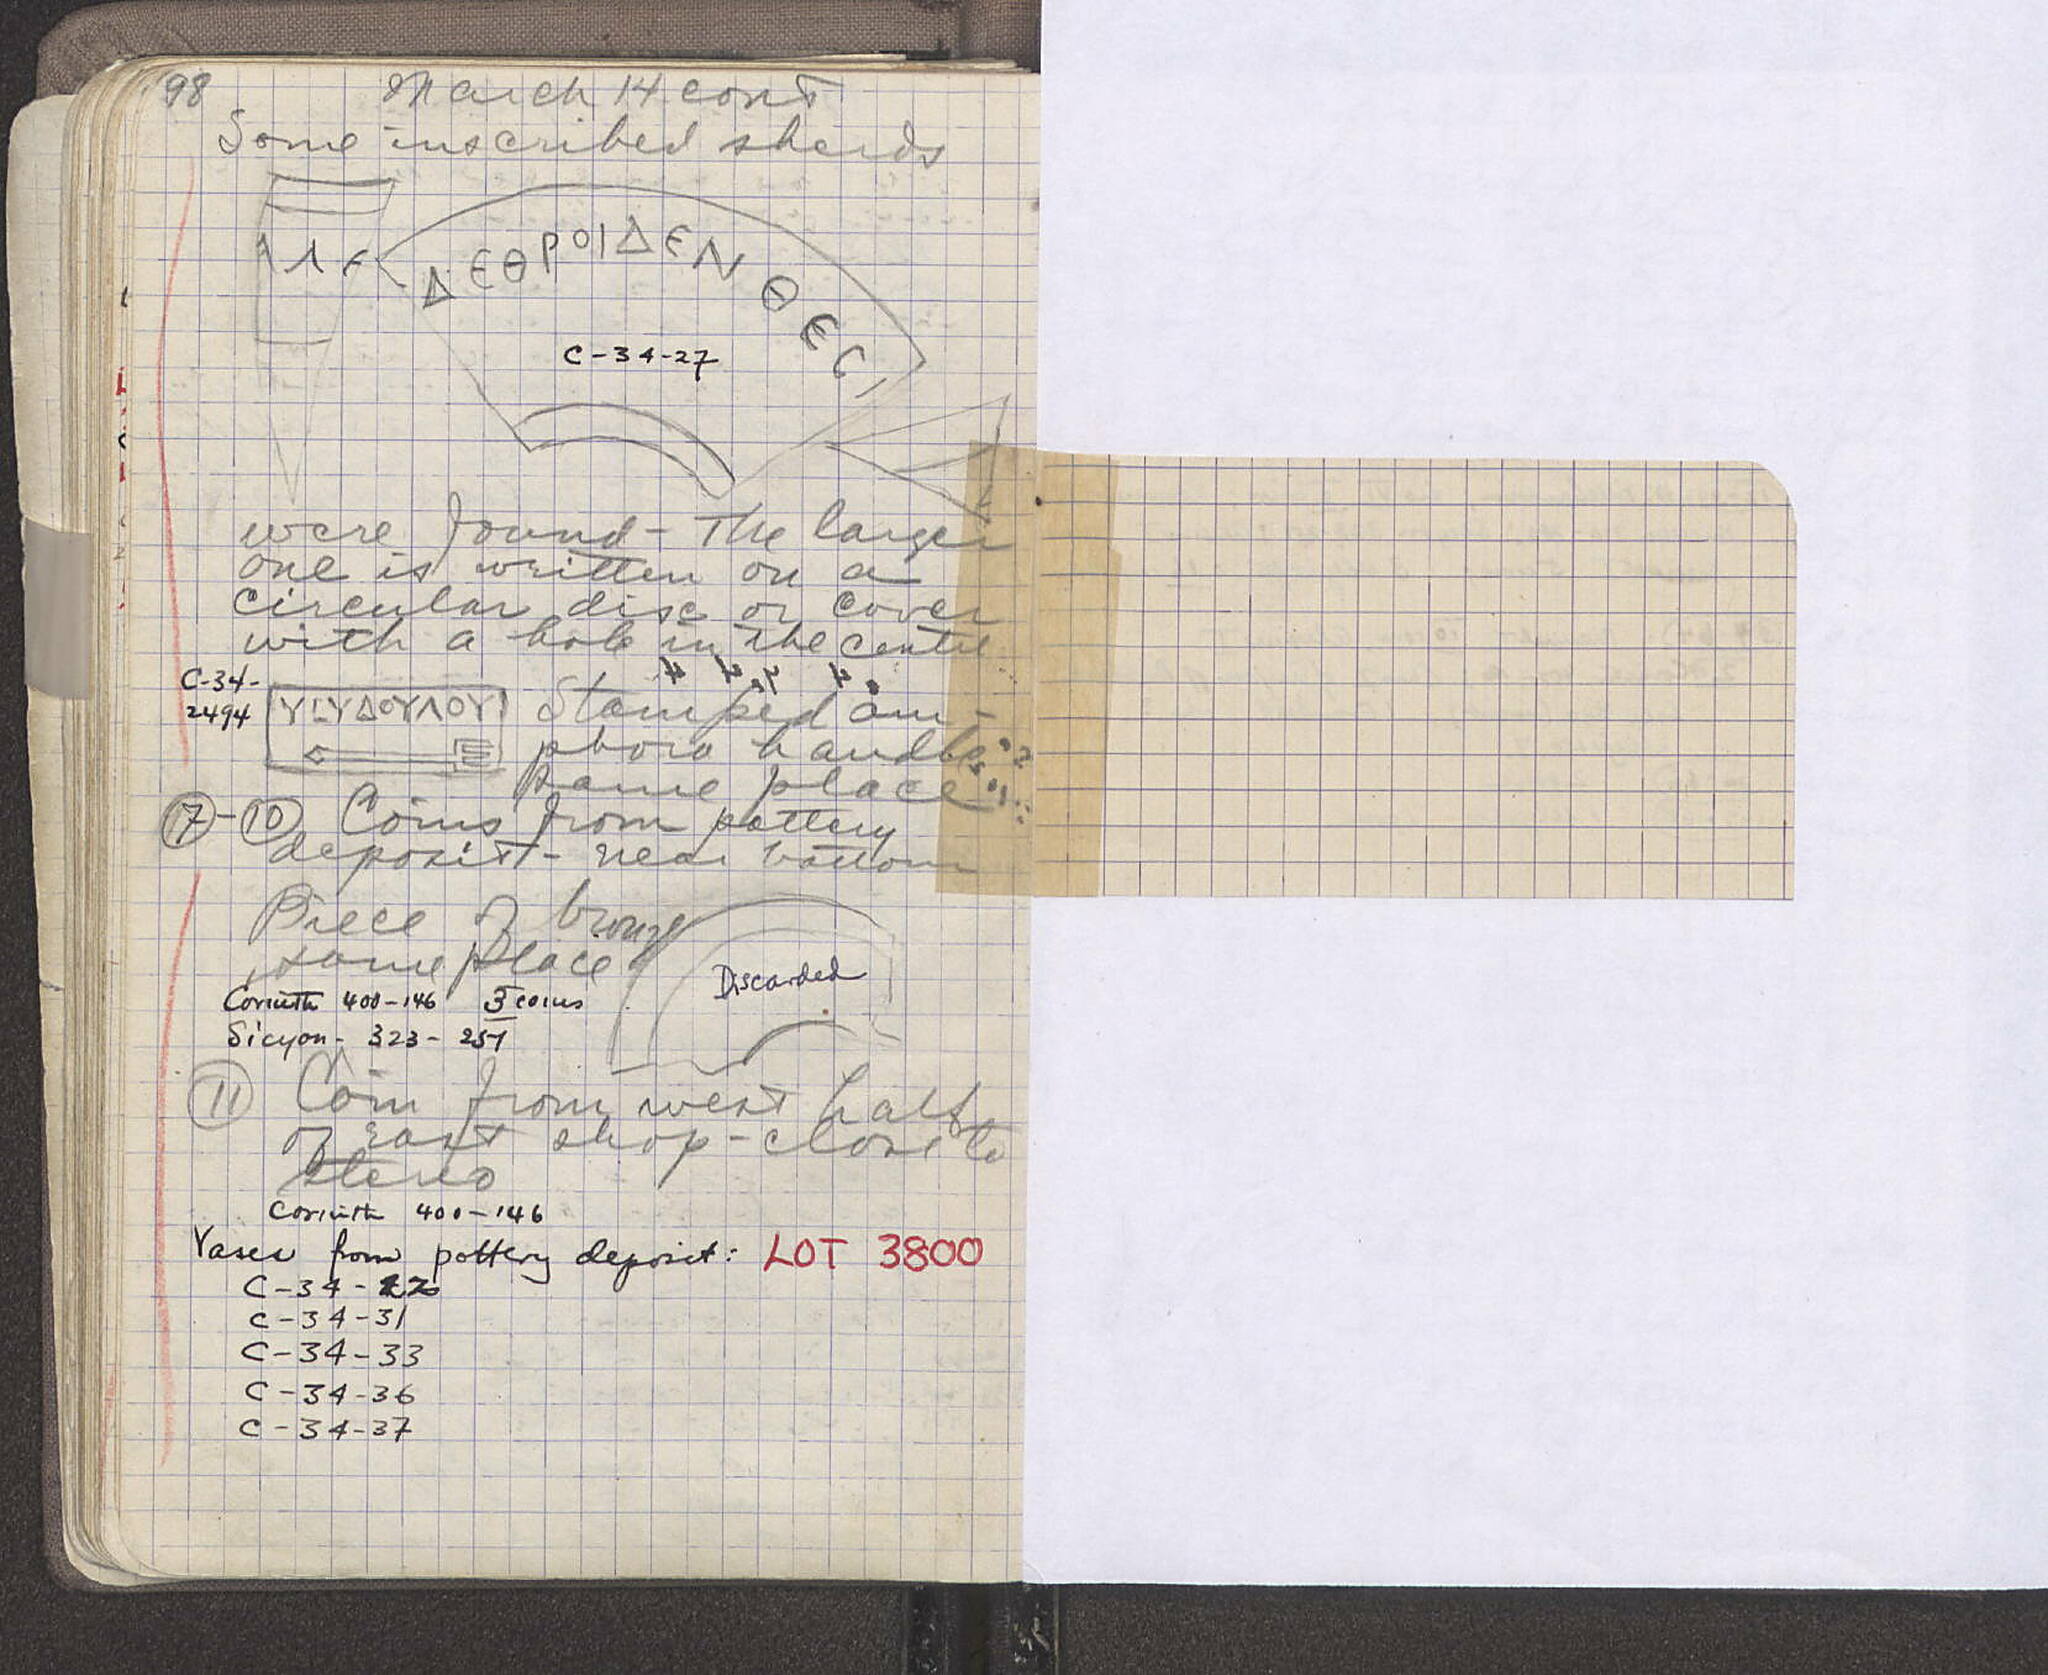 98 March 14 cont
Some inscribed sherds
ΔΕΘΡΟΙΔΕΝ ΘΕС
C-34-27
were found - The larger
one is written on a
circular disc or cover
with a hole in the centre
C-34-
2494
Stamped am-
phora handle
same place
7-10 Coins from pottery
deposit - near bottom
Piece of bronze
same place
Discarded
Corinth 400-146 3 coins
Sicyon - 323-251
11 Coin from west half
of East shop - close to
stereo
Corinth 400-146
Vases from pottery deposit: LOT 3800
C-34-
C-34-31
C-34-33
C-34-36
C-34-37